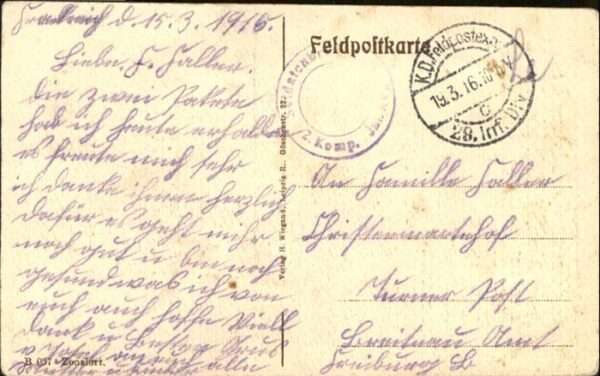 Frankreich d. 15.3.1916.
Liebe F. Faller.
die zwei Pakete
hab ich heute erhalten
es freute mich sehr
ich danke ihnen herzlich
dafür es geht mihr
noch gut u bin noch
gesund was ich von
euch auch hoffe Viell
dank u besten Grus
an euch
alle
B 057 - Zonsfort.
Verlag H. Wiegand, Leipzig R.
Feldpostkarte
2. Komp.
K.D. Feldpostexp.
19.3.16.10
c
28. Inf. Div
An Familie Faller
Christenmartehof
Turner Post
Breitnau Amt
Freiburg B